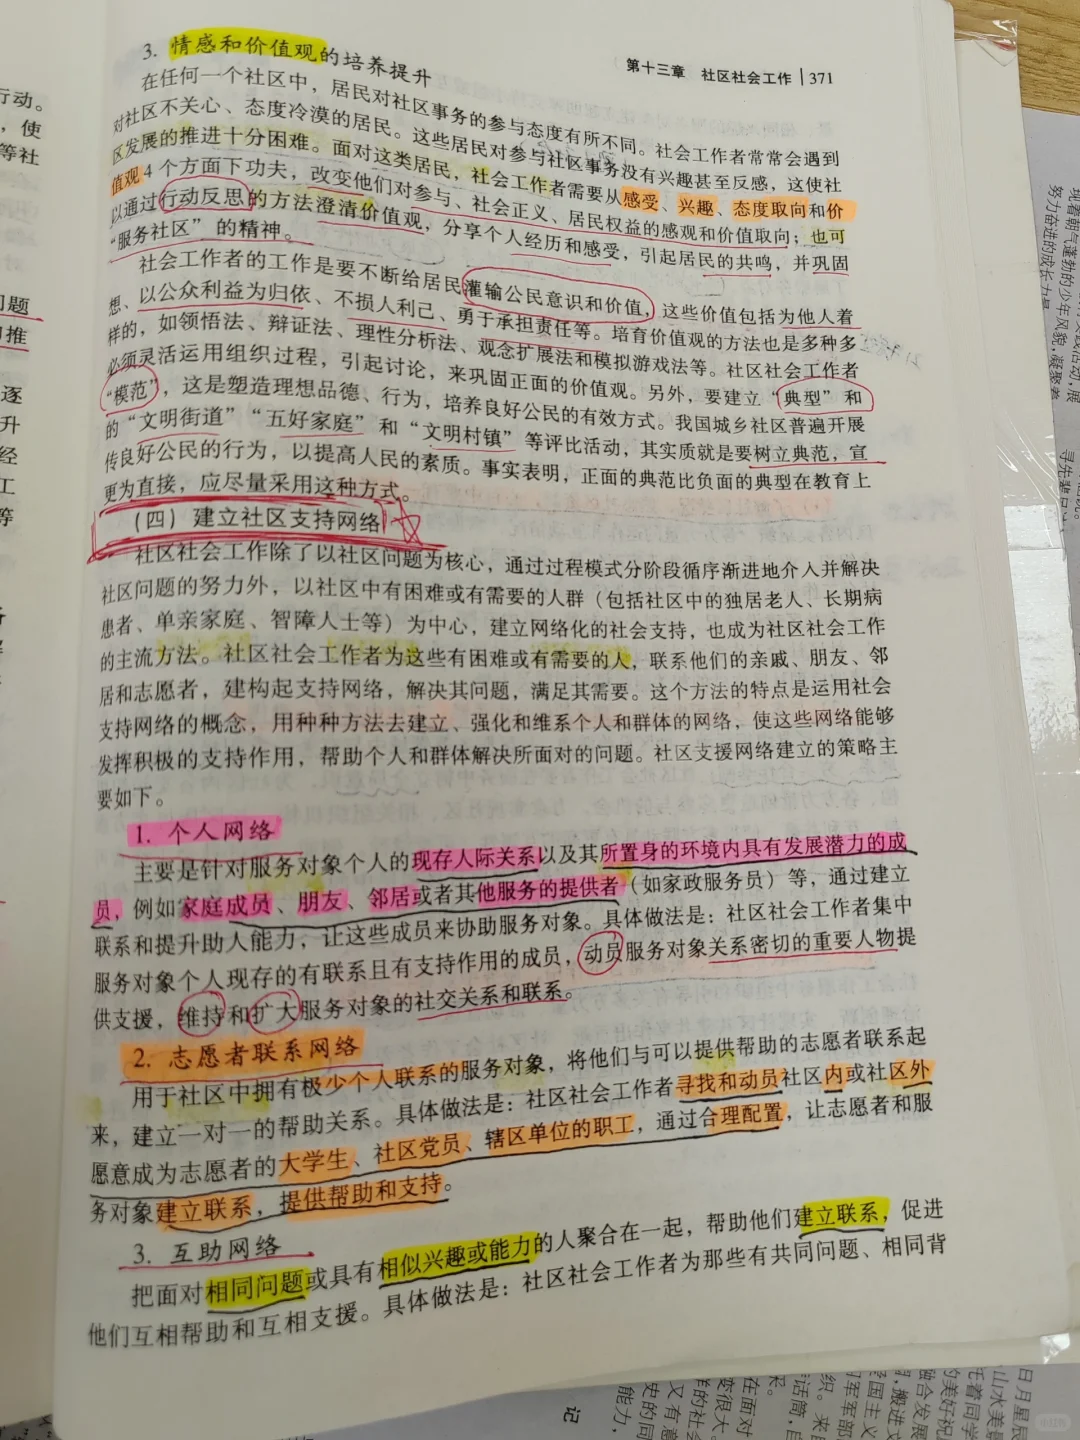 第十三章 社区社会工作 | 371
3. 情感和价值观的培养提升
在任何一个社区中，居民对社区事务的参与态度有所不同。社会工作者常常会遇到
对社区不关心、态度冷漠的居民。这些居民对参与社区事务没有兴趣甚至反感，这使社
区发展的推进十分困难。面对这类居民，社会工作者需要从感受、兴趣、态度取向和价
值观4个方面下功夫，改变他们对参与、社会正义、居民权益的感观和价值取向；也可
以通过行动反思的方法澄清价值观，分享个人经历和感受，引起居民的共鸣，并巩固
“服务社区”的精神。
社会工作者的工作是要不断给居民灌输公民意识和价值，这些价值包括为他人着
想、以公众利益为归依、不损人利己、勇于承担责任等。培育价值观的方法也是多种多
样的，如领悟法、辩证法、理性分析法、观念扩展法和模拟游戏法等。社区社会工作者
必须灵活运用组织过程，引起讨论，来巩固正面的价值观。另外，要建立“典型”和
“模范”，这是塑造理想品德、行为，培养良好公民的有效方式。我国城乡社区普遍开展
的“文明街道”“五好家庭”和“文明村镇”等评比活动，其实质就是要树立典范，宣
传良好公民的行为，以提高人民的素质。事实表明，正面的典范比负面的典型在教育上
更为直接，应尽量采用这种方式。
（四）建立社区支持网络
社区社会工作除了以社区问题为核心，通过过程模式分阶段循序渐进地介入并解决
社区问题的努力外，以社区中有困难或有需要的人群（包括社区中的独居老人、长期病
患者、单亲家庭、智障人士等）为中心，建立网络化的社会支持，也成为社区社会工作
的主流方法。社区社会工作者为这些有困难或有需要的人，联系他们的亲戚、朋友、邻
居和志愿者，建构起支持网络，解决其问题，满足其需要。这个方法的特点是运用社会
支持网络的概念，用种种方法去建立、强化和维系个人和群体的网络，使这些网络能够
发挥积极的支持作用，帮助个人和群体解决所面对的问题。社区支援网络建立的策略主
要如下。
1. 个人网络
主要是针对服务对象个人的现存人际关系以及其所置身的环境内具有发展潜力的成
员，例如家庭成员、朋友、邻居或者其他服务的提供者（如家政服务员）等，通过建立
联系和提升助人能力，让这些成员来协助服务对象。具体做法是：社区社会工作者集中
服务对象个人现存的有联系且有支持作用的成员，动员服务对象关系密切的重要人物提
供支援，维持和扩大服务对象的社交关系和联系。
2. 志愿者联系网络
用于社区中拥有极少个人联系的服务对象，将他们与可以提供帮助的志愿者联系起
来，建立一对一的帮助关系。具体做法是：社区社会工作者寻找和动员社区内或社区外
愿意成为志愿者的大学生、社区党员、辖区单位的职工，通过合理配置，让志愿者和服
务对象建立联系，提供帮助和支持。
3. 互助网络
把面对相同问题或具有相似兴趣或能力的人聚合在一起，帮助他们建立联系，促进
他们互相帮助和互相支援。具体做法是：社区社会工作者为那些有共同问题、相同背